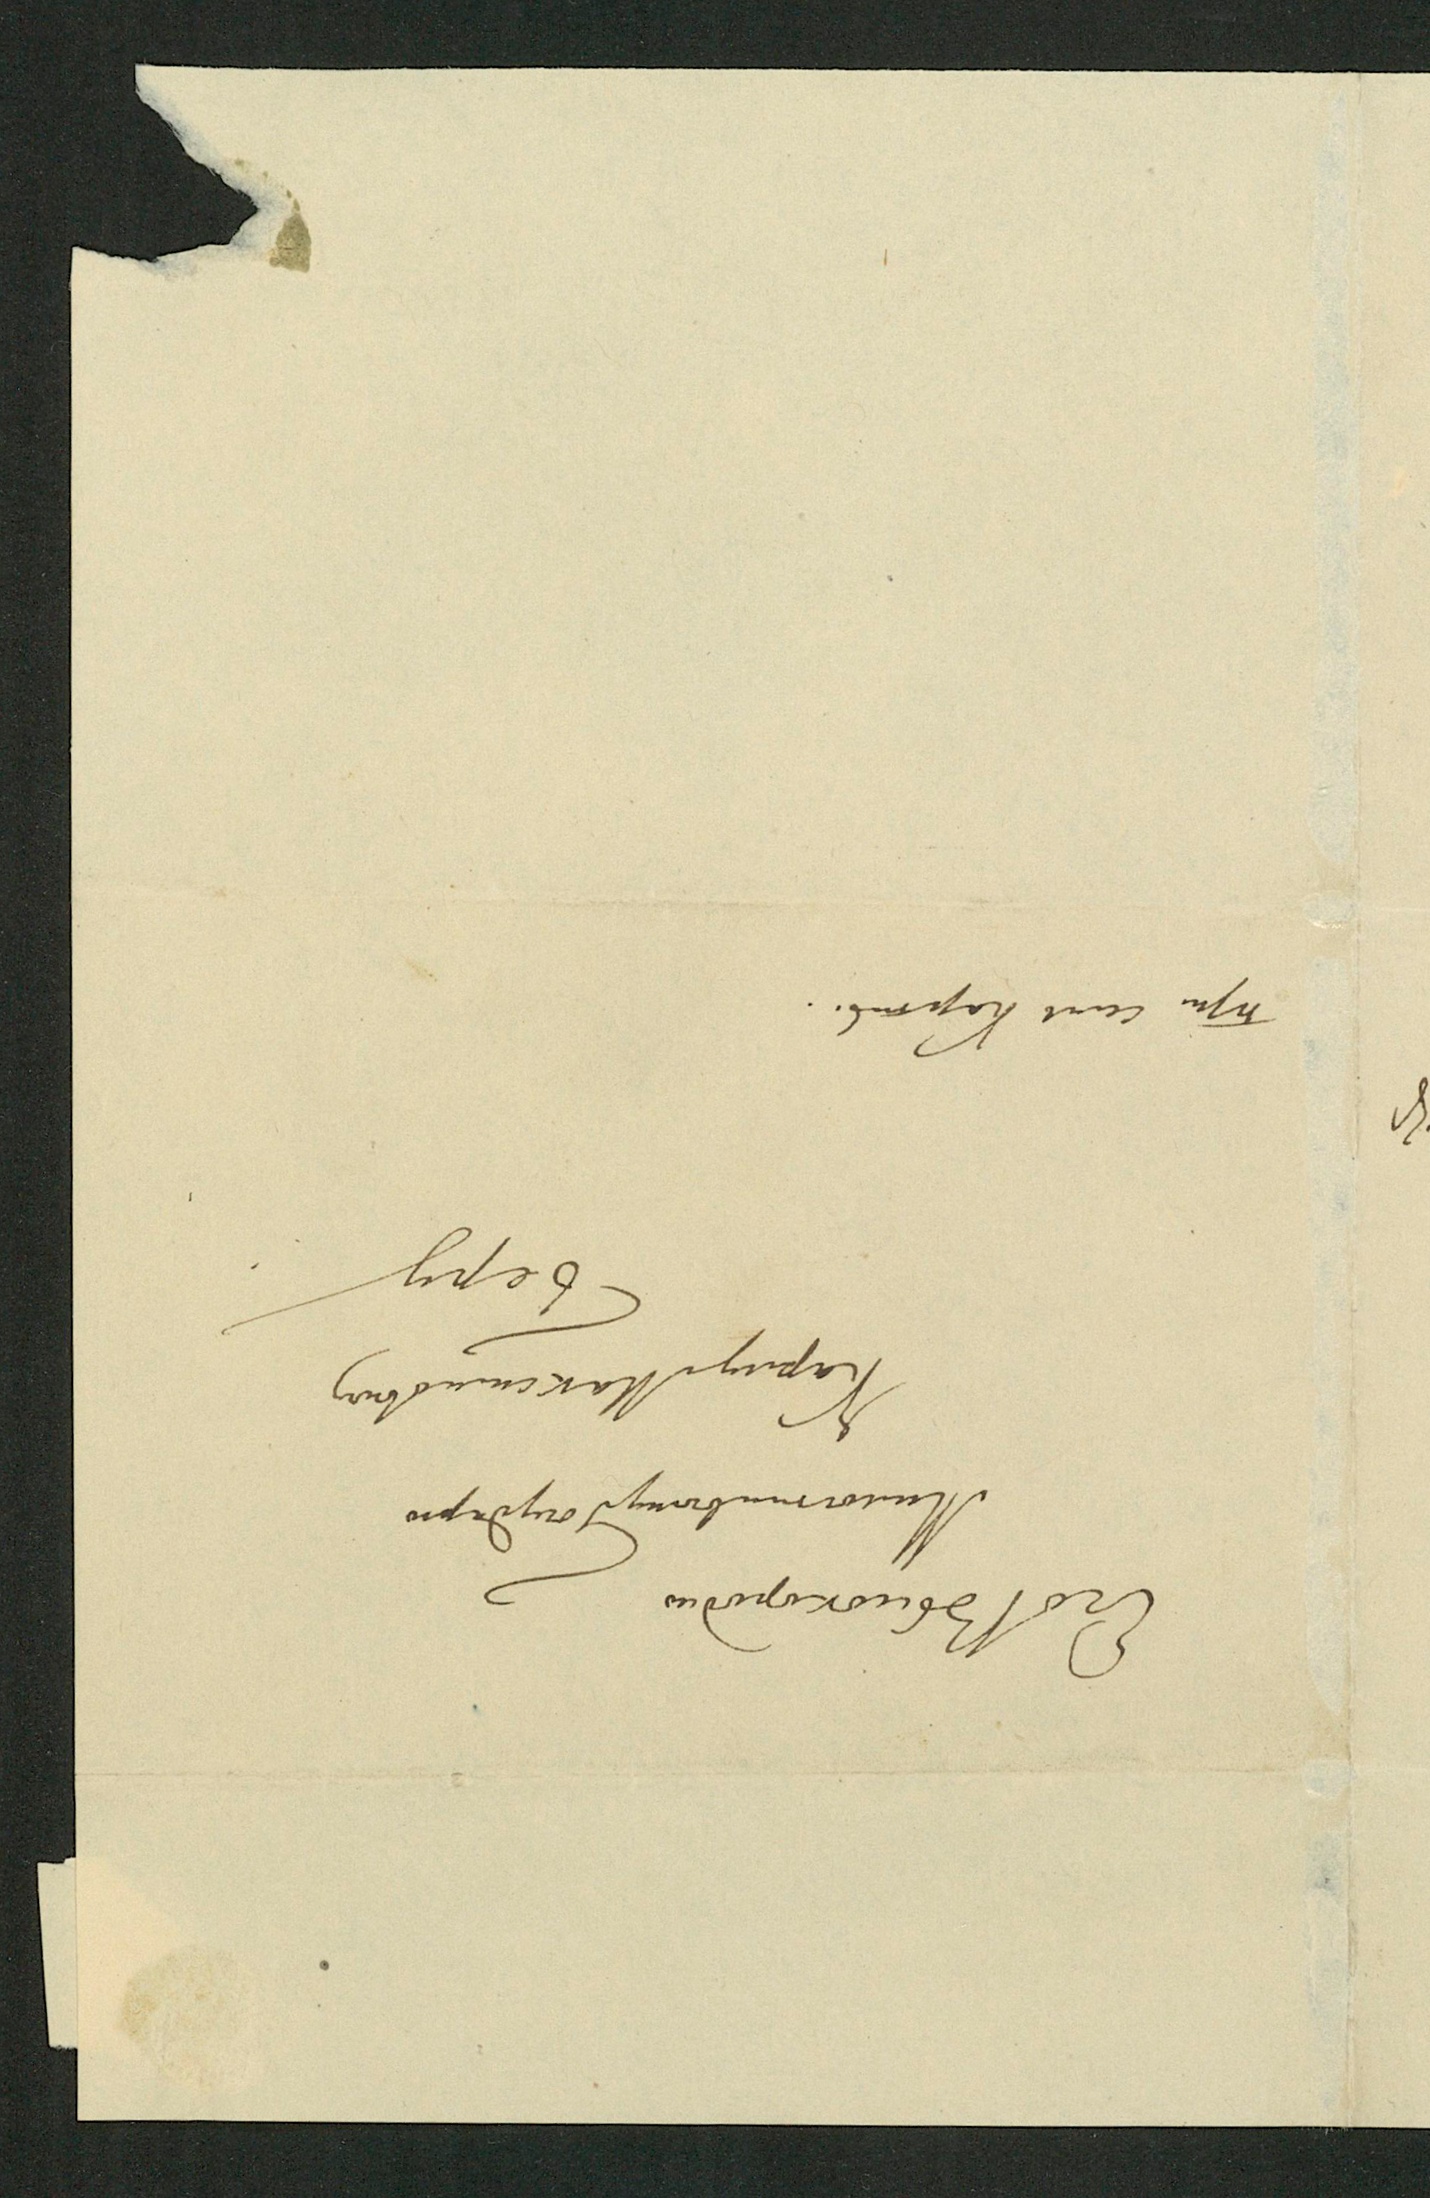 Его Высокородию
Милостивому Государю
Карлу Максимовичу
Беру
при семъ Картъ.